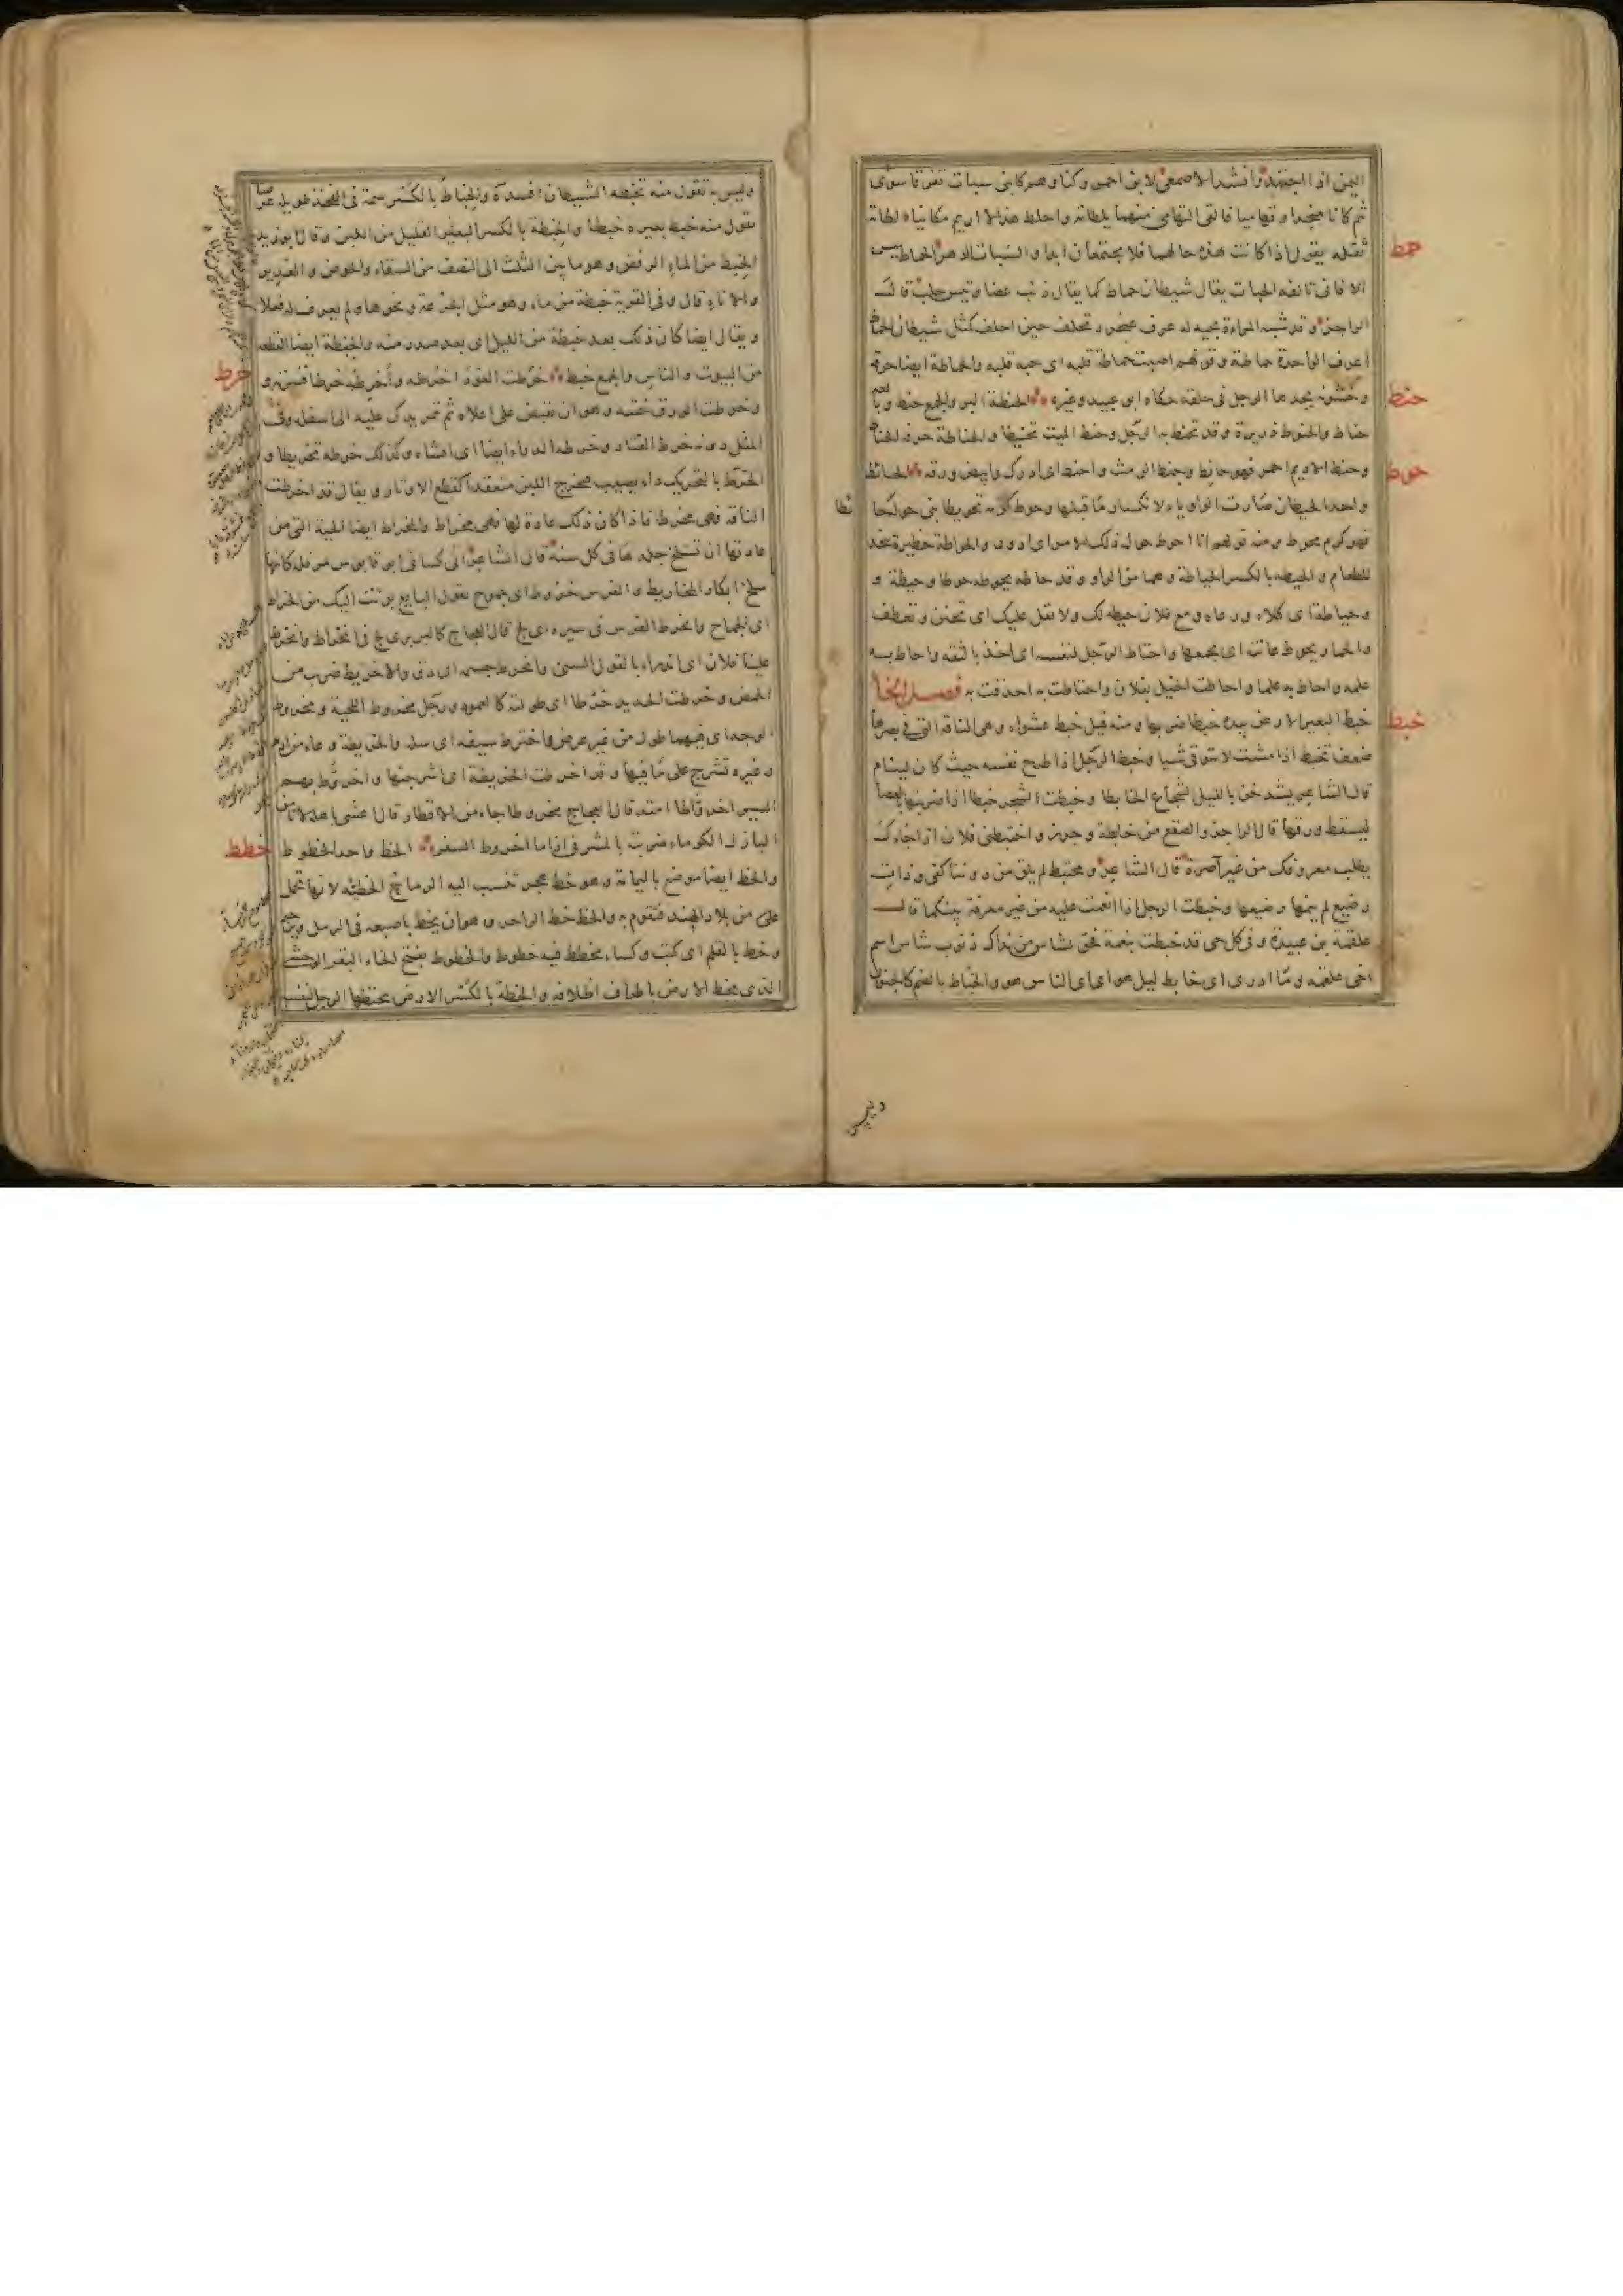 اليمن اذا اجتهد وانشد الاصمعي لابن احمر وكنا وهم كابني سبات تفرقا سوى
ثم كانا منجدا وتهاميا فالقى التهامي منهما بلطاته واحلط هذا لا اريم مكانيا لطاته
ثقله يقول اذا كانت هذه حالهما فلا يجتمعان ابدا والسبات الدهر الحماط يبيس
حمط
الافاني تالفه الحيات يقال شيطان حماط كما يقال ذئب غضا وتيس حلب قال
الراجز وقد شبه المراءة بحية له عرف عنجرد تحلف حين احلف كمثل شيطان الحماط
اعرف الواحدة حماطة وقولهم اصبت حماطة قلبه اى حبة قلبه والحماطة ايضا حرقة
وخشونة يجدها الرجل في حلقه حكاه ابو عبيد وغيره الحنطة البر والجمع حنط وبايعه
حنط
حناط والحنوط ذريرة وقد تحنط به الرجل وحنط الميت تحنيطا والحناطة حرفة الحناط
وحنط الاديم احمر فهو حانط وحنط الرمث واحنط اى ادرك وابيض ورقه الحائط
حوط
واحد الحيطان صارت الواو ياء لانكسار ما قبلها وحوط كرمه تحويطا بنى حوله حا
ئطا
فهو كرم محوط ومنه قولهم انا احوط حول ذلك الامر اى ادور والحواطة حظيرة تتخذ
للطعام والحيطة بالكسر الحياطة وهما من الواو وقد حاطه يحوطه حوطا وحيطة و
وحياطة اى كلاه ورعاه ومع فلان حيطة لك ولا تقل عليك اى تحنن وتعطف
والحمار يحوط عانته اى يجمعها واحتاط الرجل لنفسه اى اخذ بالثقة واحاط به
علمه واحاط به علما واحاطت الخيل بفلان واحتاطت به احدقت به فصل الخا
خبط البعير الارض بيده خبطا ضربها ومنه قيل خبط عشواء وهى الناقة التى في بصرها
خبط
ضعف تخبط اذا مشت لا تتوقى شيا وخبط الرجل اذا طرح نفسه حيث كان لينام
قال الشاعر يشدخن بالليل الشجاع الخابطا وخبطت الشجر خبطا اذا ضربتها بالعصا
ليسقط ورقها قال الراجز والصقع من خابطة وجرز واختبطنى فلان اذا جاءك
يطلب معروفك من غير آصرة قال الشاعر ومختبط لم يلق من دوننا كفى وذات
رضيع لم ينمها رضيعها وخبطت الرجل اذا انعمت عليه من غير معرفة بينكما قال
علقمة بن عبيدة وفى كل حى قد خبطت بنعمة فحق لشاس من نداك ذنوب شاس اسم
اخى علقمة وما ادرى اى خابط ليل هو اى اى الناس هو والخباط بالضم كالجنون
وليس
وليس به تقول منه تخبطه الشيطان افسده والخباط بالكسر سمة فى الفخذ طويلة عرضا
تقول منه خبط بعيره خبطا والخبطة بالكسر البقير القليل من اللبن وقال ابو زيد
الخبط من الماء الرفض وهو ما بين الثلث الى النصف من السقاء والحوض والغدير
والاناء قال وفى القربة خبطة من ماء وهو مثل الجزعة ونحوها ولم يعرف له فعلا
ويقال ايضا كان ذلك بعد خبطة من الليل اى بعد صدر منه والخبطة ايضا القطعه
من البيوت والناس والجمع خبط خرطت العود اخرطه واخرطه خرطا قشرته و
خرط
وخرطت الورق حتته وهو ان تقبض على اعلاه ثم تمر يدك عليه الى اسفله وفى
المثل دونه خرط القتاد وخرطه الدواء ايضا اى امشاه وكذلك خرطه تخريطا و
الخرط بالتحريك داء يصيب فيخرج اللبن منعقدا كقطع الاوتار ويقال قد اخرطت
الناقة فهى مخرط فاذا كان ذلك عادة لها فهى مخراط والمخراط ايضا الحية التى من
عادتها ان تسلخ جلدها فى كل سنة قال الشاعر انى كسانى ابو قابوس مرفلة كانها
سلخ ابكار المخاريط والفرس خروط اى جموح تقول البايع برئت اليك من الخراط
اى الجماح وانخرط الفرس فى سيره اى لج قال العجاج كالبربرى لج فى انخراط وانخرط
علينا فلان اى اندراء بالقول السيئ وانخرط جسمه اى دق والاخريط ضرب من
الحمض وخرطت الحديد خرطا اى طولته كالعمود ورجل مخروط اللحية ومخروط
الوجه اى فيهما طول من غير عرض واخترط سيفه اى سله والخريطة وعاء من ادم
وغيره تشرج على ما فيها وقد اخرطت الخريطة اى اشرجتها واخروط بهم
السير اخرواطا امتد قال العجاج مخروطا جاء من الاقطار قال اعشى باهلة لا تامن
البازل الكوماء ضربته بالمشرفى اذا ما اخروط السفر الخط واحد الخطوط
خطط
والخط ايضا موضع باليمامة وهو خط هجر تنسب اليه الرماح الخطية لانها تحمل
على من بلاد الهند فتقوم به والخط خط الزاجر وهو ان يخط باصبعه فى الرمل ويزجر
وخط بالقلم اى كتب وكساء مخطط فيه خطوط والخطوط بفتح الخاء البقر الوحشى
الذى يخط الارض باطراف اظلافه والخطة بالكسر الارض يختطها الرجل لنفسه